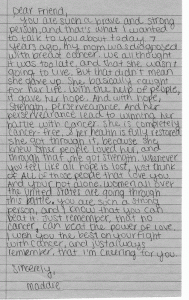 Dear Friend,
You are such a brave and strong
person, and that's what I wanted
to talk to you about today. 7
years ago, my mom was diagnosed
with breast cancer. We all thought
it was too late, and that she wasn't
going to live. But that didn't mean
she gave up. She basically fought
for her life. With the help of people,
it gave her hope. And with hope,
strength, perseverance. And her
perseverance lead to winning her
battle with cancer. She is completly
cancer-free, & her health is fully restored.
She got through it, because she
knew other people loved her, and
through that, she got strength. Whenever
you feel like all hope is lost, just think
of ALL of those people that love you.
And your not alone. Women all over
the United States are going through
this battle. You are such a strong
person, and I know that you can
beat it. Just remember, that no
cancer, can beat the power of love.
I wish you the best on your fight
with cancer, and just always
remember, that I'm cheering for you.
Sincerely,
Maddie